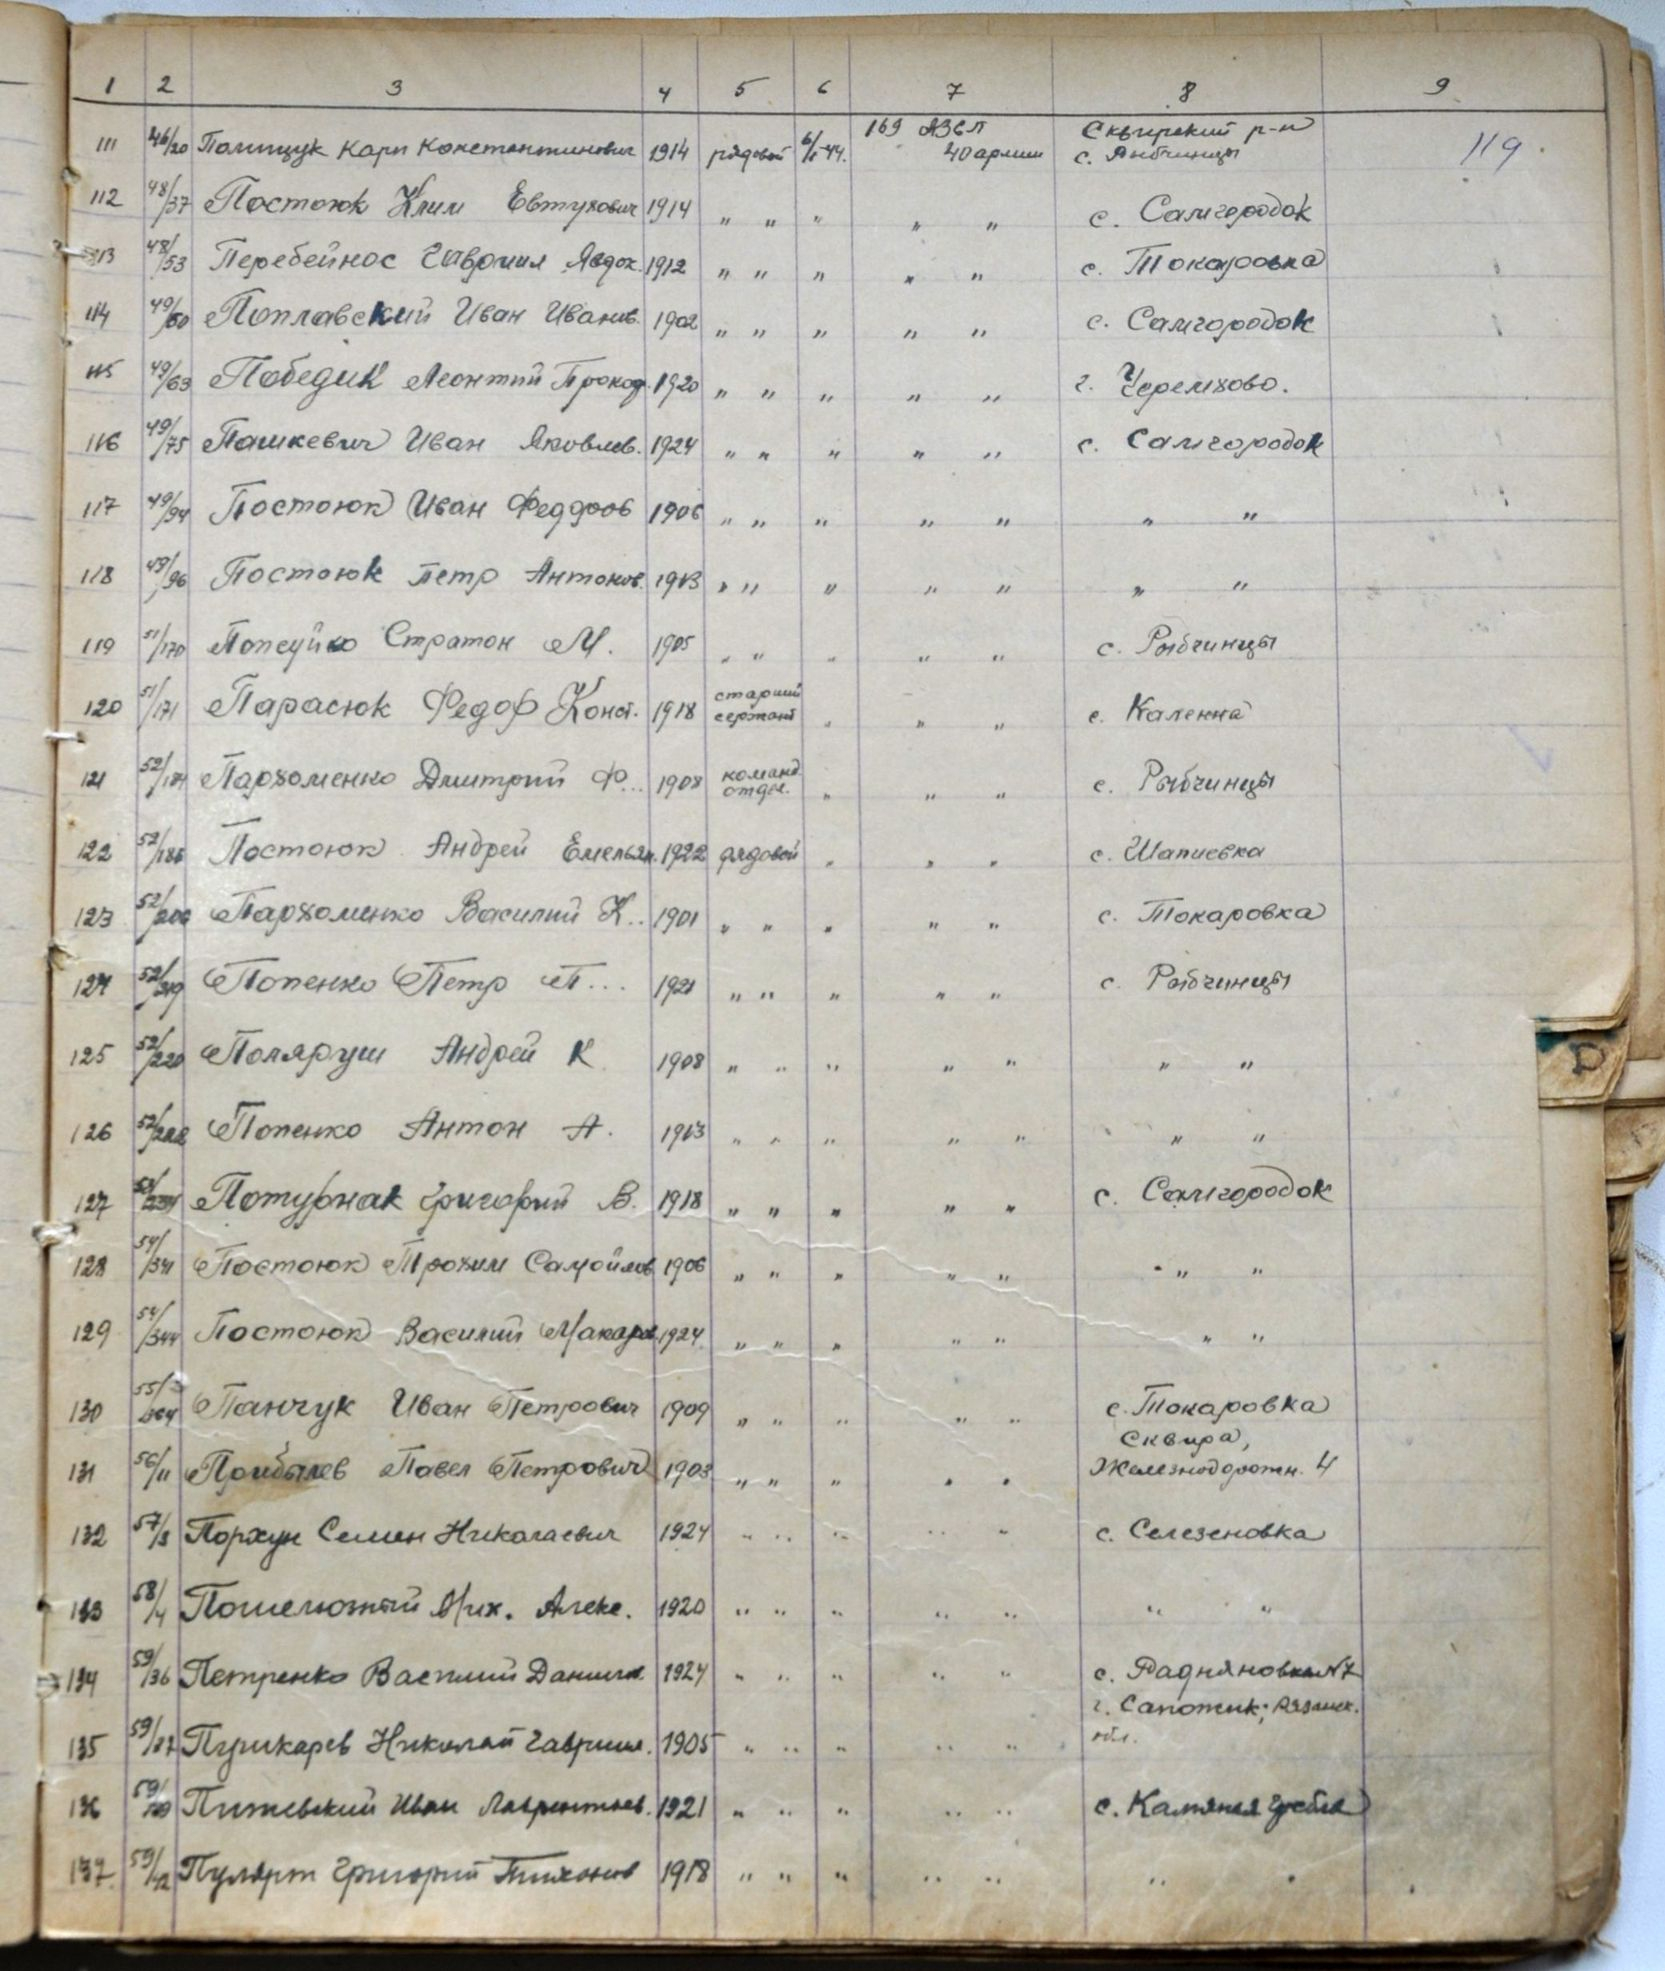 1 2 3 4 5 6 7 8 9
119
111 46/20 Полищук Карп Константинович 1914 рядовой 6/I-44. 169 АЗСП 40 армии Сквирский р-н с. Рыбчинцы
112 48/37 Постоюк Клим Евтухович 1914 " " " " " с. Самгородок
113 48/53 Перебейнос Гавриил Явдох. 1912 " " " " " с. Токаровка
114 49/60 Поплавский Иван Иванов. 1902 " " " " " с. Самгородок
115 49/63 Победик Леонтий Прокоф. 1920 " " " " " г. Черемхово.
116 49/75 Пашкевич Иван Яковлев. 1924 " " " " " с. Самгородок
117 49/94 Постоюк Иван Федоров 1906 " " " " " " "
118 49/96 Постоюк Петр Антонов. 1913 " " " " " " "
119 51/170 Стратон М. 1905 " " " " " с. Рыбчинцы
120 51/171 Парасюк Федор Конст. 1918 старший сержант " " " с. Каленна
121 52/ Пархоменко Дмитрий Ф... 1908 команд. отдел. " " " с. Рыбчинцы
122 52/186 Постоюк Андрей Емельян. 1922 рядовой " " " с. Шапиевка
123 52/ Пархоменко Василий К.. 1901 " " " " " с. Токаровка
124 52/219 Попенко Петр П... 1921 " " " " " с. Рыбчинцы
125 52/220 Поляруш Андрей К 1908 " " " " " " "
126 52/222 Попенко Антон А. 1913 " " " " " " "
127 Потурнак Григорий В. 1918 " " " " " с. Самгородок
128 54/341 Постоюк Трохим Самойлов 1906 " " " " " " "
129 54/344 Постоюк Василий Макаров. 1924 " " " " " " "
130 55/ Панчук Иван Петрович 1909 " " " " " с. Токаровка
131 56/11 Прибылев Павел Петрович 1903 " " " " " Сквира, Железнодорожн. 4
132 57/3 Порхун Семен Николаевич 1924 " " " " " с. Селезеновка
133 58/4 Пошелюжный Мих. Алекс. 1920 " " " " " " "
134 59/36 Петренко Василий Данилов. 1924 " " " " " с.
135 59/37 Пушкарев Николай Гаврил. 1905 " " " " " г. Сапожик, Рязанск. обл.
136 59/ Пижевский Иван Лаврентьев. 1921 " " " " " с. Камяная гребля
137 59/42 Григорий Тихонов 1918 " " " " " " "
Р